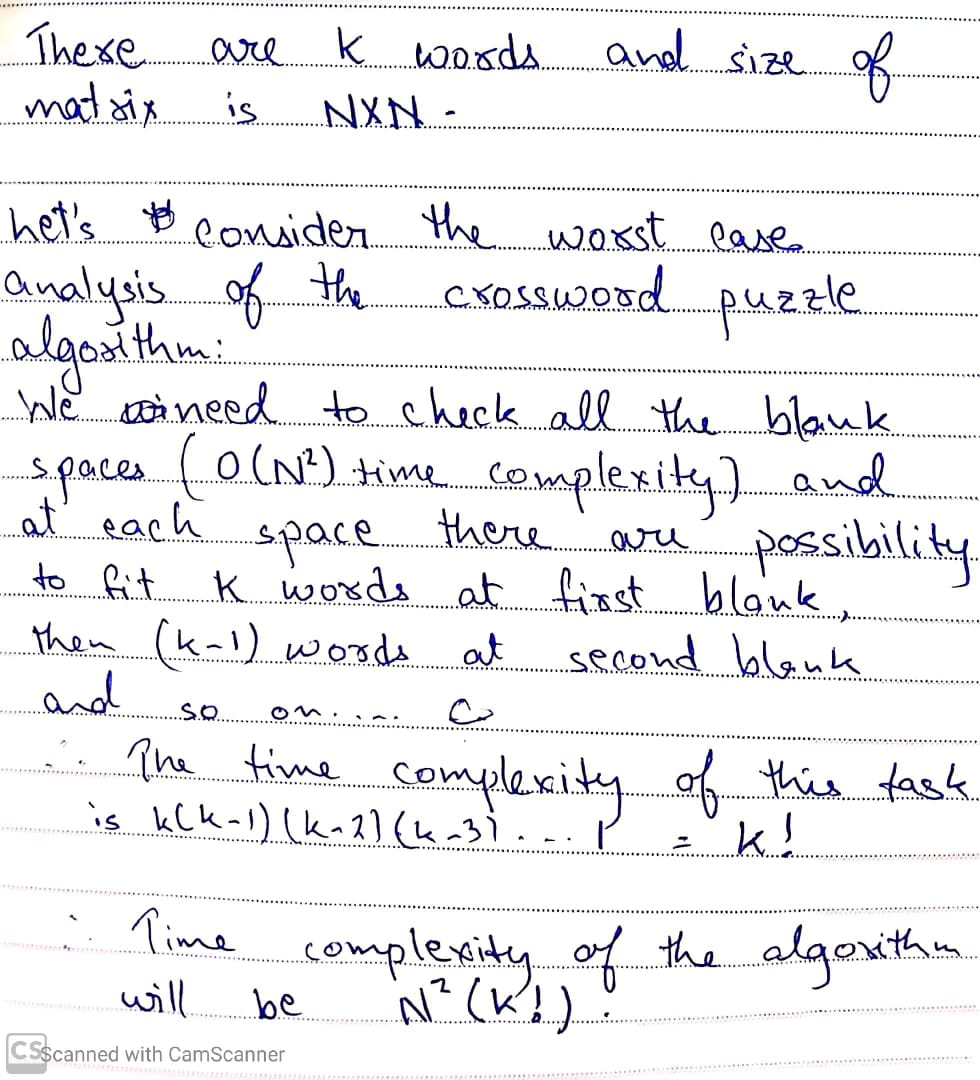 There are k words and size of
matrix is NXN -
Let's consider the worst case
analysis of the crossword puzzle
algorithm:
We need to check all the blank
spaces (O(N²) time complexity) and
at each space there are possibility
to fit K words at first blank,
then (k-1) words at second blank
and so on....
∴ The time complexity of this task
is k(k-1)(k-2)(k-3)....1 = k!
∴ Time complexity of the algorithm
will be N²(K!).
CS Scanned with CamScanner